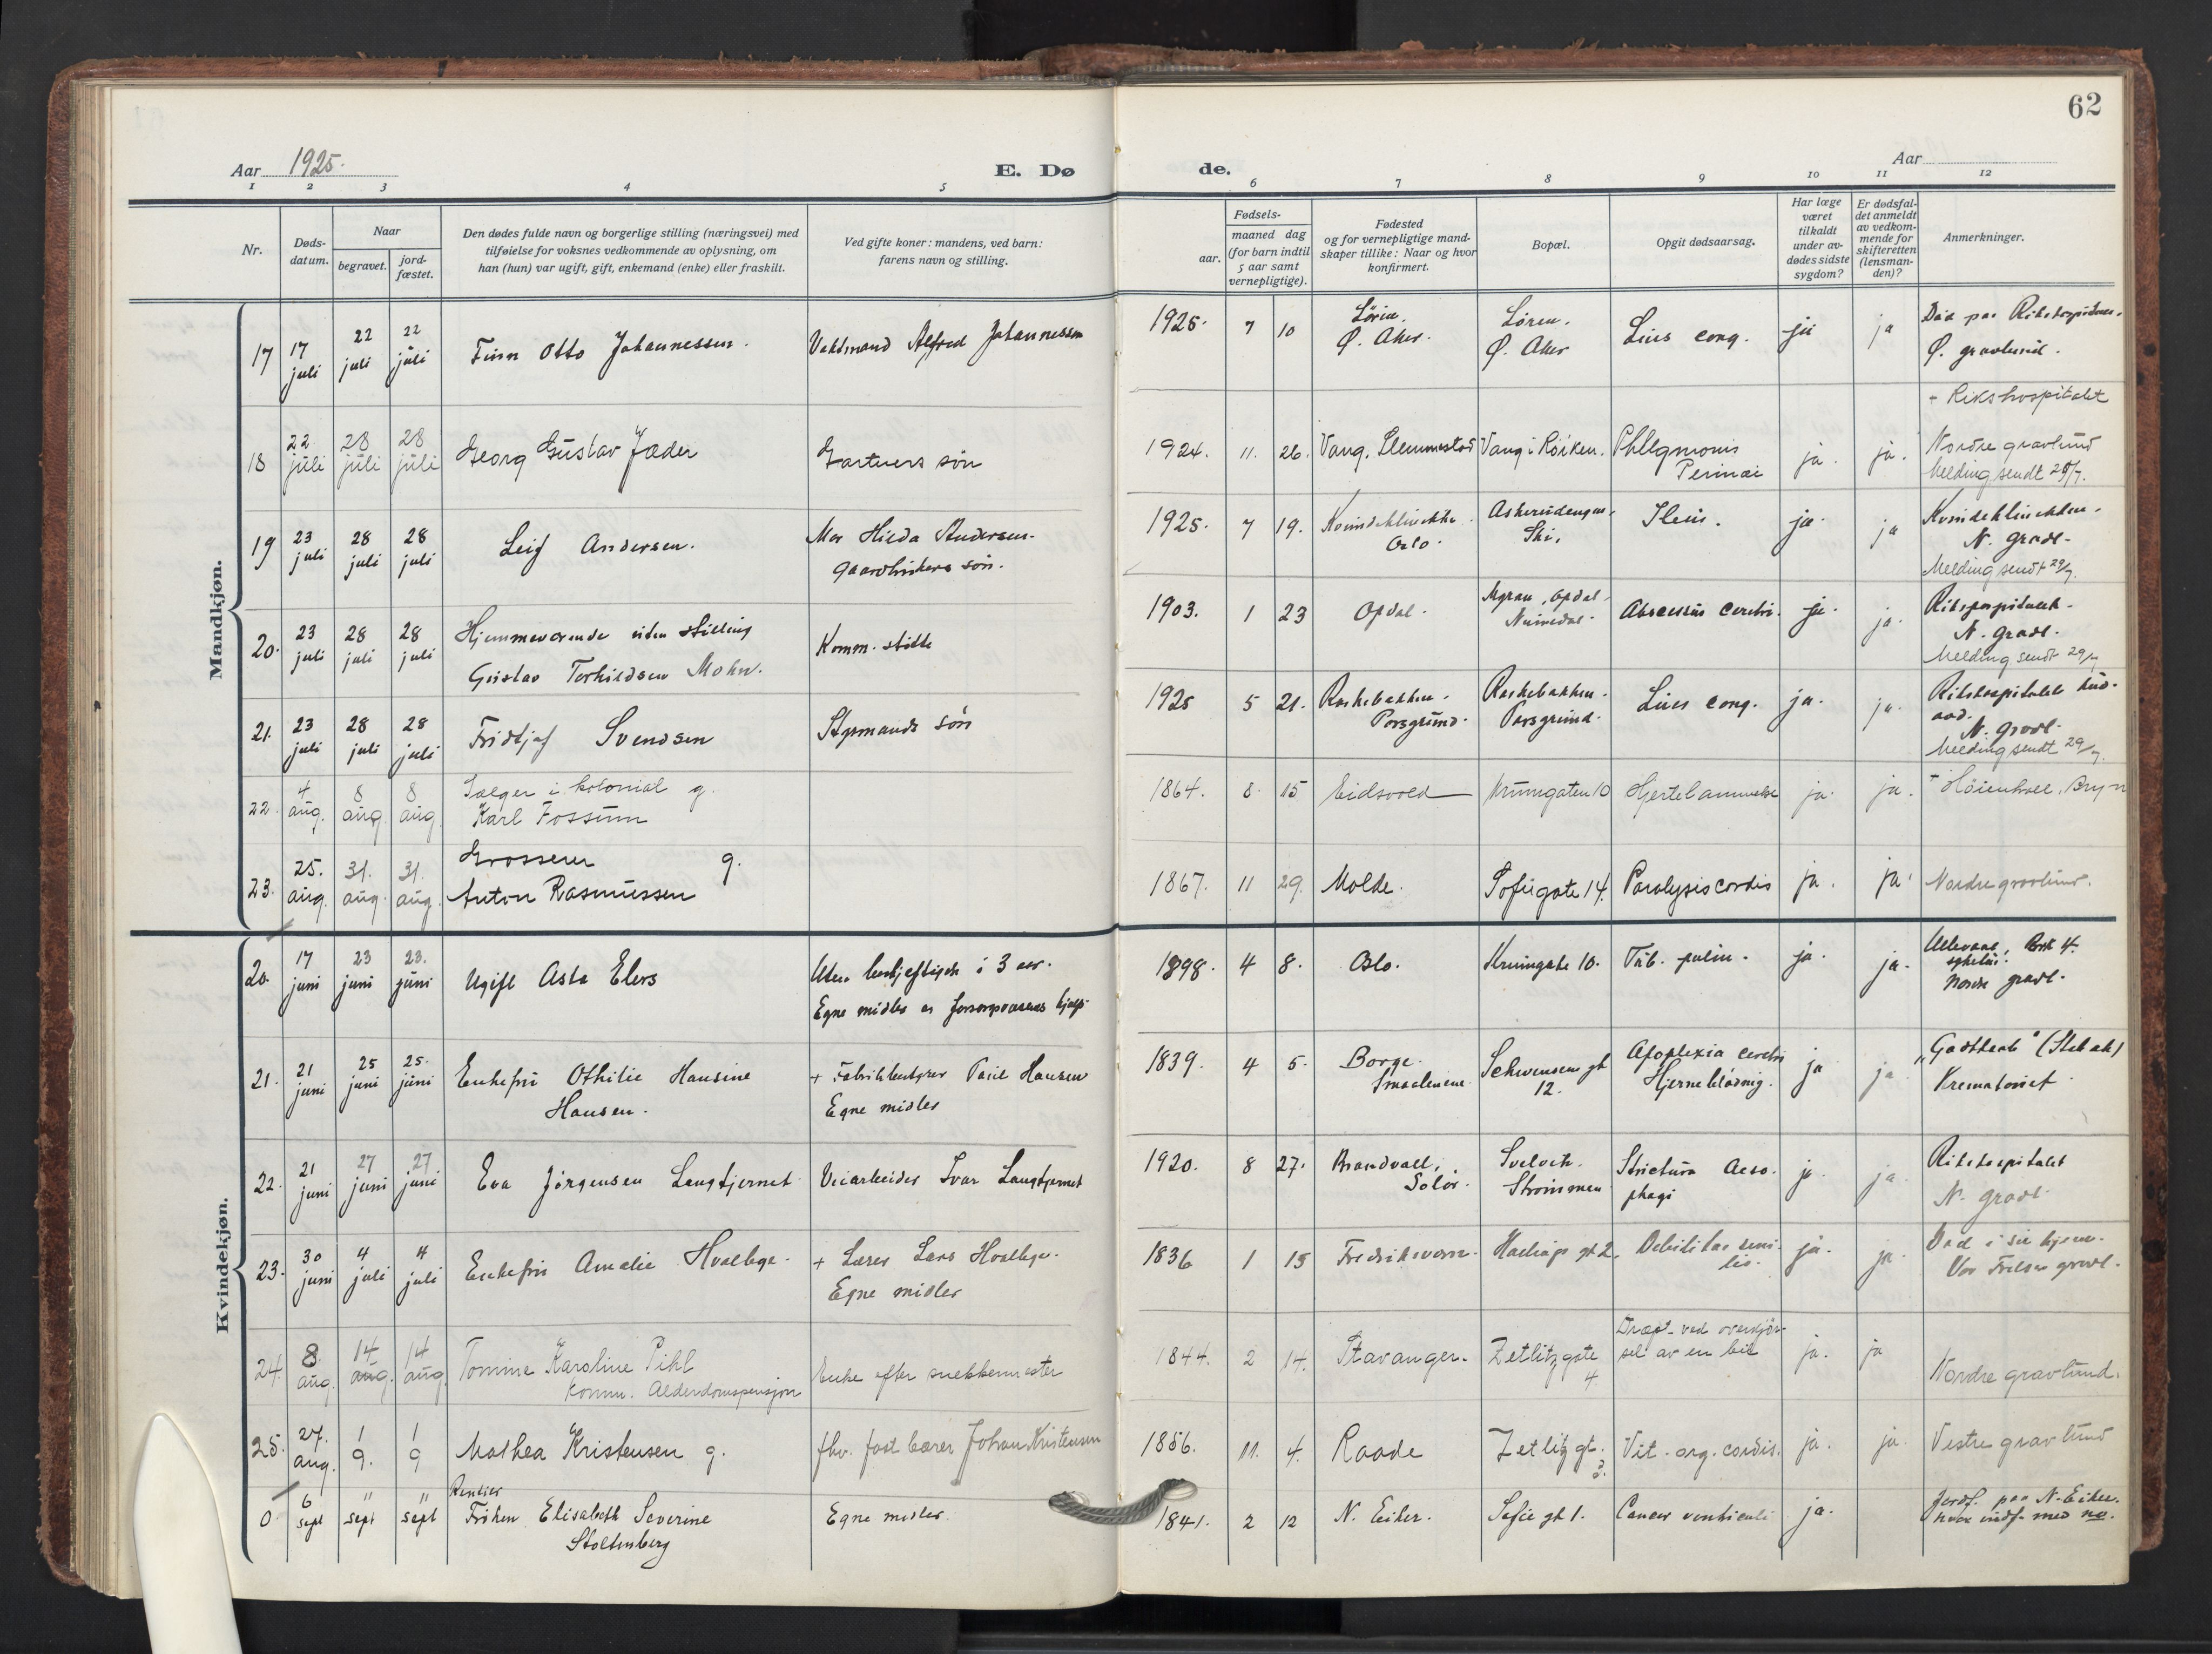 62
Aar 1925.
E. Dø de.
Aar
1 2 3 4 5 6 7 8 9 10 11 12
Nr.
Døds-
datum.
Naar
begravet.
jord-
fæstet.
Den dødes fulde navn og borgerlige stilling (næringsvei) med
tilføielse for voksnes vedkommende av oplysning, om
han (hun) var ugift, gift, enkemand (enke) eller fraskilt.
Ved gifte koner: mandens, ved barn:
farens navn og stilling.
Fødsels-
aar.
maaned dag
(for barn indtil
5 aar samt
vernepligtige).
Fødested
og for vernepligtige mand-
skaper tillike: Naar og hvor
konfirmert.
Bopæl.
Opgit dødsaarsag.
Har læge
været
tilkaldt
under av-
dødes sidste
sygdom?
Er dødsfal-
det anmeldt
av vedkom-
mende for
skifteretten
(lensman-
den)?
Anmerkninger.
Mandkjøn.
17 17 juli 22 juli 22 juli Finn Otto Johannessen. Vaktmand Alfred Johannessen 1925. 7 10 Løren. Ø. Aker. Løren. Ø. Aker Lues cong. ja ja Død paa Rikshospitalet. Ø. gravlund.
18 22 juli 28 juli 28 juli Georg Gustav Jæder Gartners søn 1924. 11. 26. Vang, Slemmestad Vang i Röiken. Phlegmonis Perinæi ja. ja. + Rikshospitalet Nordre gravlund Melding sendt 29/7.
19 23 juli 28 juli 28 juli Leif Andersen. Mor Hilda Andersen. Gaardbrukers søn. 1925. 7 19. Kvindeklinikken Oslo. Askerudengen, Ski. Ileus. ja. ja Kvindeklinikken. N. gravl. Melding sendt 29/7.
20. 23 juli 28 juli 28 juli Hjemmeværende uten stilling Gustav Torkildsen Mohn. Komm. støtte 1903. 1 23 Opdal. Opdal. Numedal. Abscessus cerebri. ja. ja. Rikshospitalet. N. gravl. Melding sendt 29/7
21. 23 juli 28 juli 28 juli Fridtjof Svendsen Styrmands søn 1925 5 21. Raskebakken. Porsgrund. Raskebakken. Porsgrund. Lues cong. ja. ja. Rikshospitalet hud. avd. N. gravl. Melding sendt 29/7.
22. 4 aug. 8 aug. 8 aug. Sælger i kolonial g. Karl Fossum 1864. 8. 15 Eidsvold Krumgaten 10 Hjertelammelse ja. ja. + Høienhall, Bryn
23. 25. aug. 31. aug. 31. aug. Grosserer g. Anton Rasmussen 1867. 11 29. Molde. Sofiegate 14. Paralysis cordis ja. ja. Nordre gravlund.
Kvindekjøn.
20. 17 juni 23 juni 23. juni Ugift Asta Elers Uten beskjeftigelse i 3 aar. Egne midler og forsorgsvæsenets hjelp. 1898. 4 8. Oslo. Krumgate 10. Tub. pulm. ja. ja. Ullevaal sykehus. Nordre gravl.
21. 21 juni 25 juni 25. juni Enkefru Othilie Hansine Hansen. + Fabrikbestyrer Paul Hansen Egne midler 1839. 4 5. Borge. Smaalenene. Schwensens gt 12. Apoplexia cerebri Hjerneblødning. ja ja "Godthaab" (Stabæk) Krematoriet
22. 21 juni 27 juni 27 juni Eva Jørgensen Langtjernet Veiarbeider Ivar Langtjernet 1920. 8 27. Brandvall, Solør. Svelvik. Strömmen Strictura Aeso- phagi ja. ja. Rikshospitalet N. gravl.
23. 30 juni 4 juli 4 juli Enkefru Amalie Hvalbye. + Lærer Lars Hvalbye. Egne midler 1836 1 15 Fredriksvern. gt 2. Debilitas seni- lis. ja. ja. Død i sit hjem. Vor Frelser gravl.
24. 8. aug. 14 aug. 14 aug. Tomine Karoline Pihl komm. Alderdomspensjon Enke efter snekkermester 1844. 2 14. Stavanger. Zetlitzgate 4. Dræpt ved overkjør- sel av en bil ja. ja Nordre gravlund.
25. 27. aug. 1 9. 1 9 Mathea Kristensen g. fhv. postbærer Johan Kristensen 1856. 11. 4. Raade Zetlitz gt. 3. Vit. org. cordis. ja. ja. Vestre gravlund
0. 6 sept 11 sept 11 sept Rentier Frøken Elisabeth Severine Stoltenberg Egne midler. 1841. 2 12 N. Eiker. Sofie gt 1. Cancer ventriculi ja. Jordf. paa N. Eiker. hvor indf. med no.